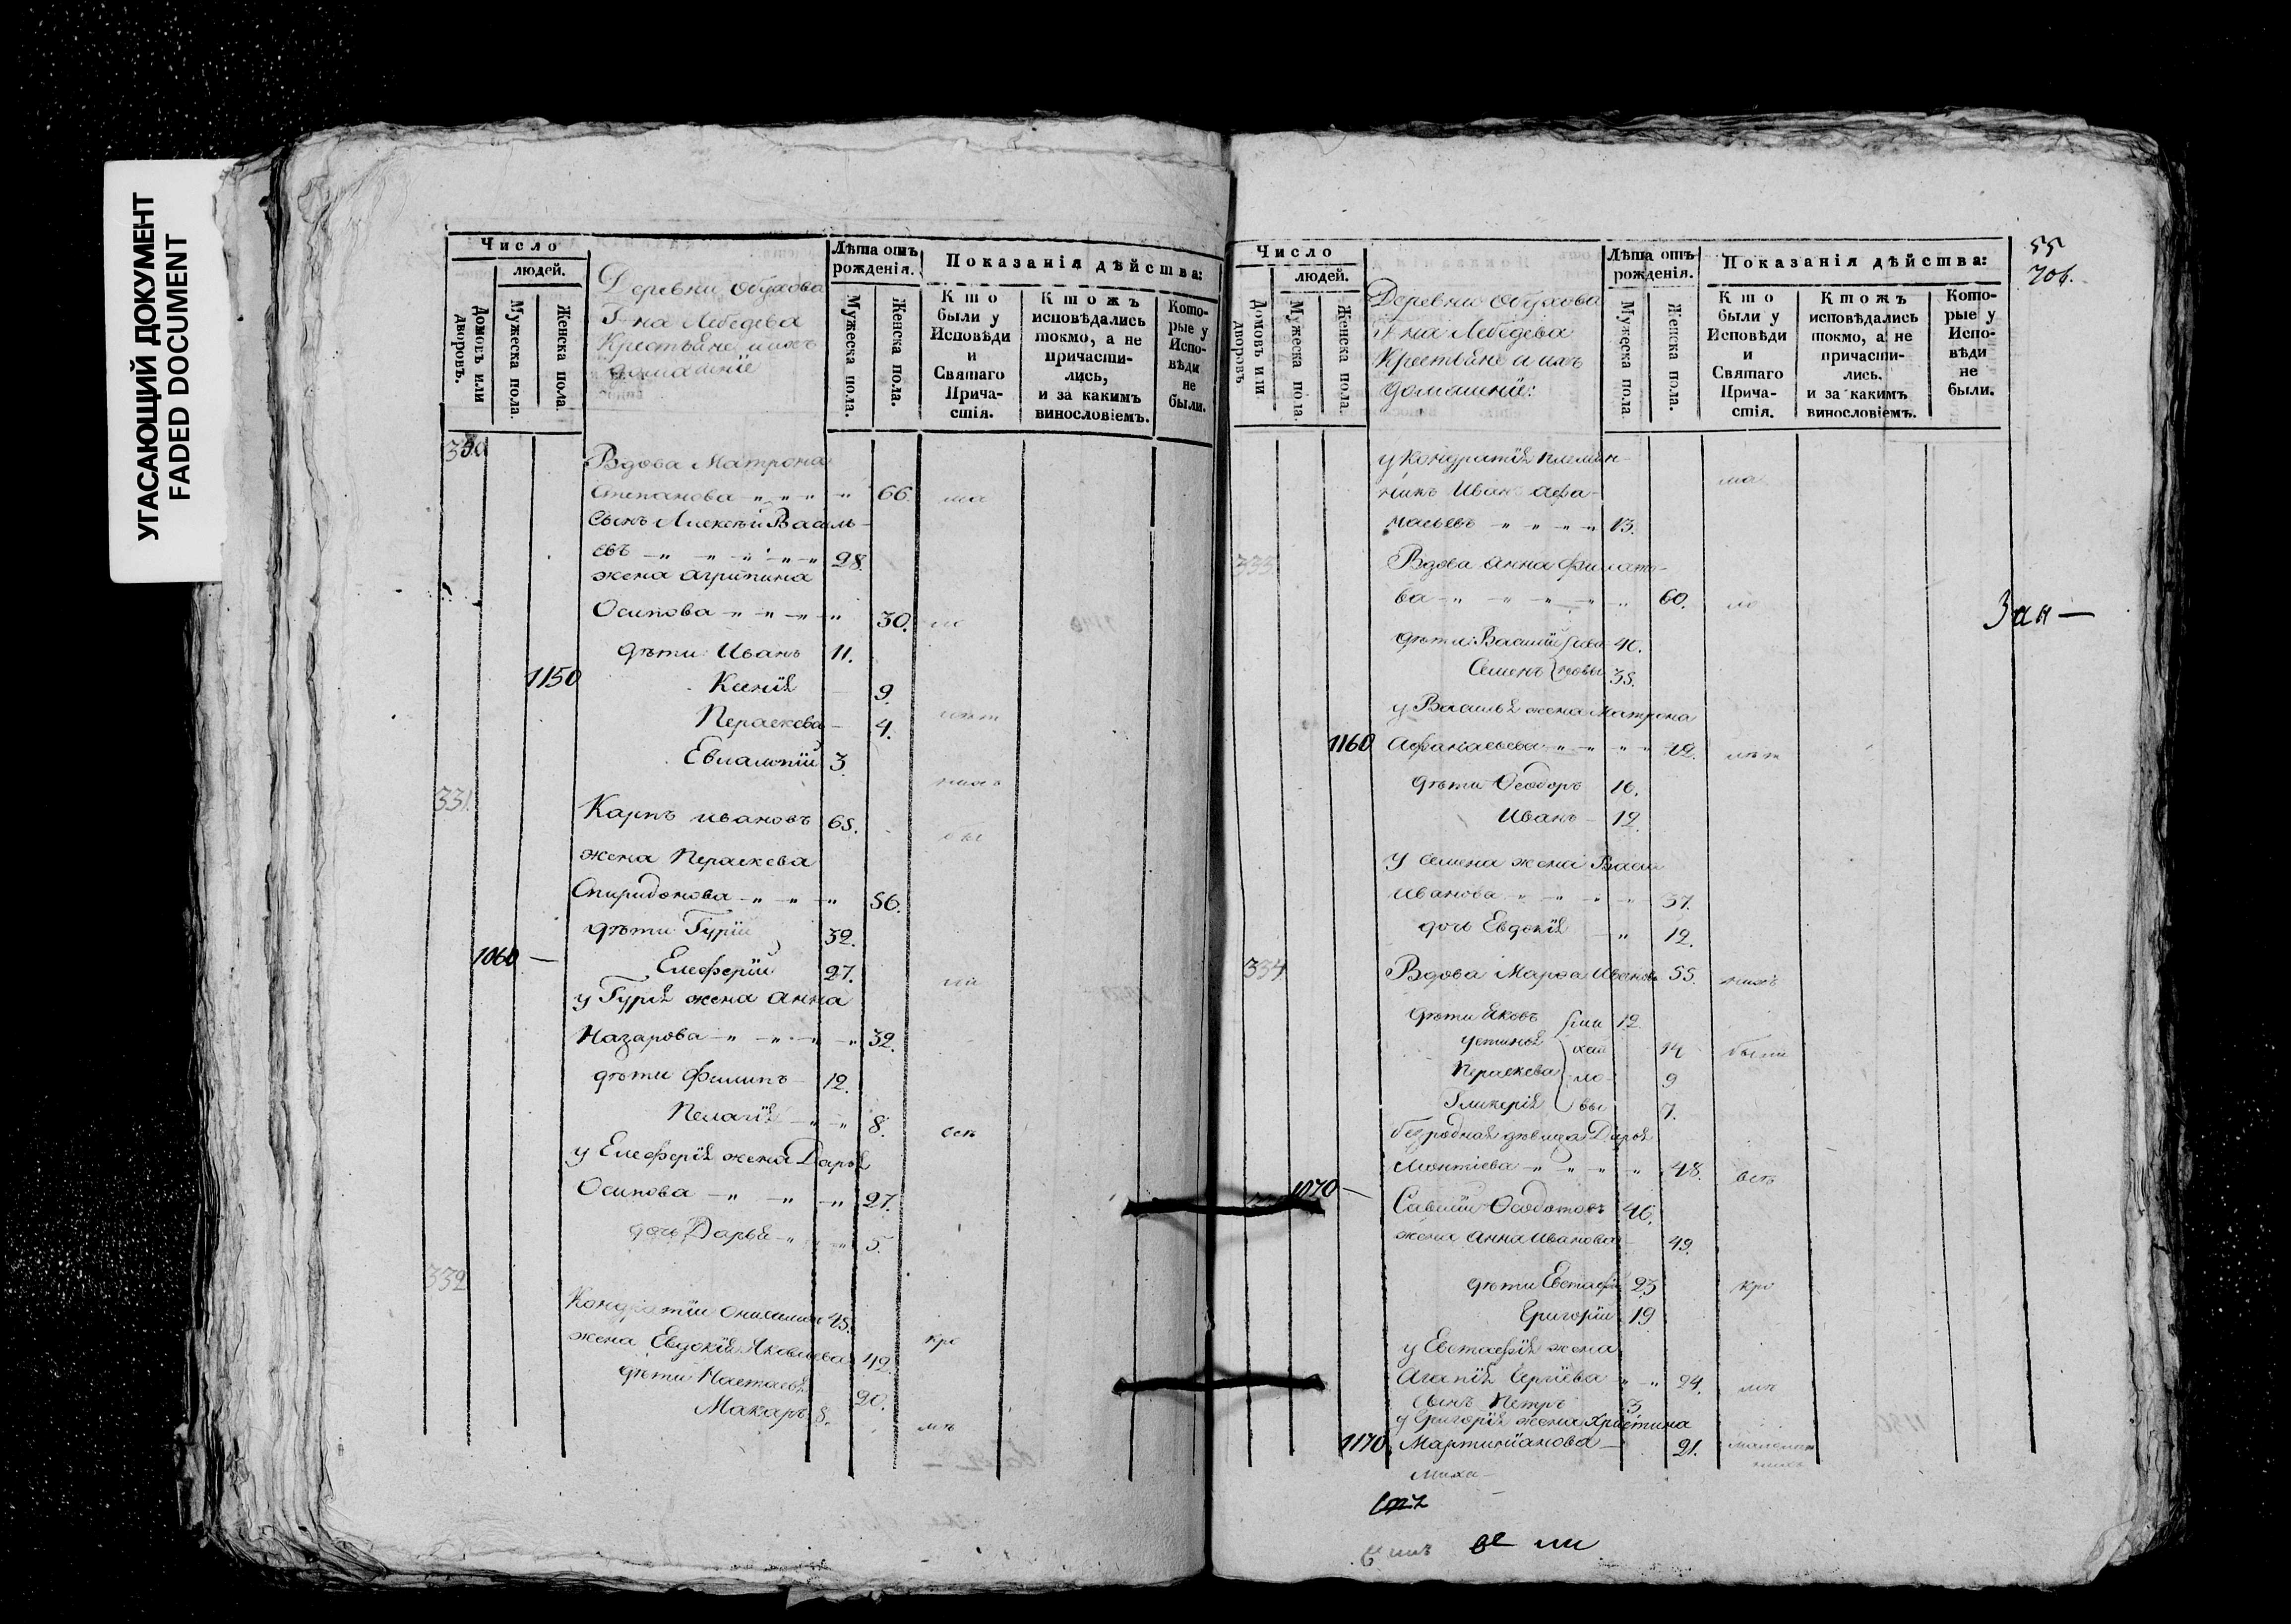 УГАСАЮЩИЙ ДОКУМЕНТ
FADED DOCUMENT
Число
людей.
Домовъ или дворовъ.
Мужеска пола.
Женска пола.
Деревни Обухова
Г-на Лебедева
Крестьяне и ихъ
домашніе
Лѣта отъ рожденія.
Мужеска пола.
Женска пола.
Показанія дѣйства:
Кто были у Исповѣди и Святаго Причастія.
Ктожъ исповѣдались токмо, а не причастились, и за какимъ винословіемъ.
Которые у Исповѣди не были.
330
Вдова Матрона
Степанова 66.
сынъ Алексѣй Василь-
евъ 28.
жена Агрипина
Осипова 30.
дѣти: Иванъ 11.
1150 Ксенія 9.
Параскева 4.
Евлампій 3.
331.
Карпъ Ивановъ 65.
жена Параскева
Спиридонова 56.
дѣти Гурій 32.
1060 — Елеферій 27.
у Гурія жена Анна
Назарова 32.
дѣти Филипъ 12.
Пелагія 8.
у Елеферія жена Дарья
Осипова 27.
дочь Дарья 5.
332
Кондратій 45.
жена Евдокія Яковлева 42.
дѣти Настасья 20.
Макаръ 8.
Число
людей.
Домовъ или дворовъ
Мужеска пола.
Женска пола.
Деревни Обухова
Г-на Лебедева
Крестьяне и ихъ
домашніе:
Лѣта отъ рожденія.
Мужеска пола
Женска пола.
Показанія дѣйства:
Кто были у Исповѣди и Святаго Причастія.
Ктожъ исповѣдались токмо, а не причастились. и за какимъ винословіемъ.
Которые у Исповѣди не были.
55
706.
у Кондратія племян-
никъ Иванъ Афа-
насьевъ 13.
333.
Вдова Анна Филато-
ва 60.
дѣти: Василій 40.
Семенъ 35.
у Василья жена Матрона
1160 Афанасьева 42.
дѣти Ѳеодоръ 16.
Иванъ 12.
у Семена жена Васи
Иванова 37.
дочь Евдокія 12.
334
Вдова Марѳа Иванова 55.
дѣти Яковъ 12.
Устинья 14
Параскева 9
Гликерія 7.
безродная дѣвица Дарья
Леонтіева 48.
1070 —
Савелій Ѳедотовъ 46.
жена Анна Иванова 49.
дѣти Евстафій 23
Григорій 19
у Евстафія жена
Агапія Сергіева 24.
сынъ Петръ 3
у Григорія жена Христина
1170. Мартиніанова 21.